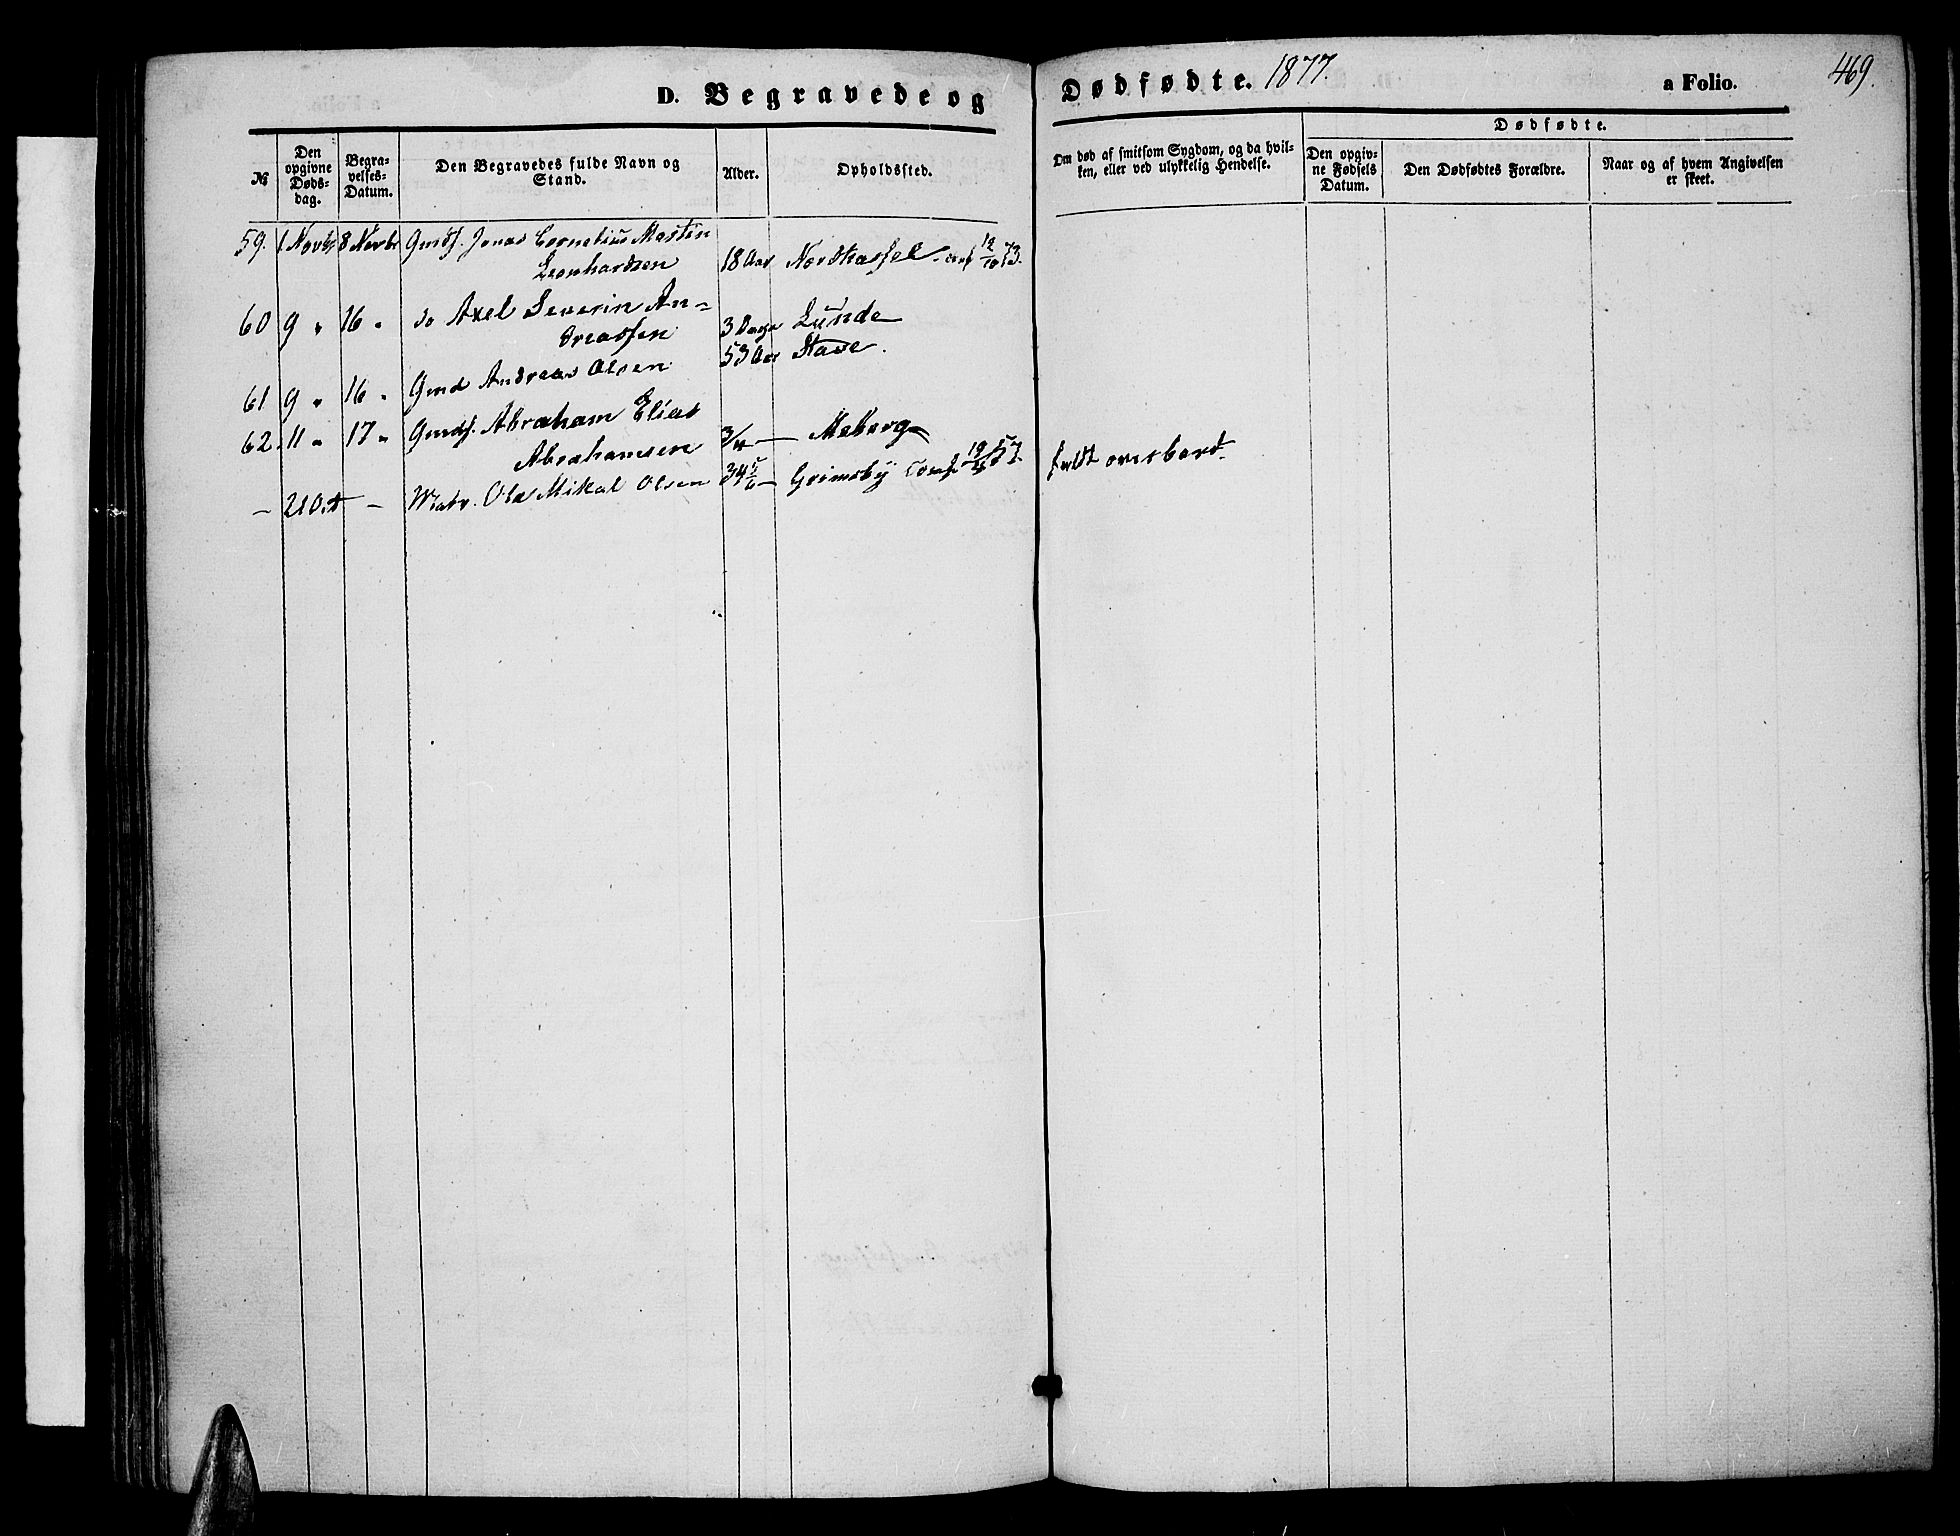 D. Begravede og Dødfødte. 1877. a Folio. 469.
№
Den opgivne Døds-dag.
Begra-velses-Datum.
Den Begravedes fulde Navn og Stand.
Alder.
Opholdssted.
Om død af smitsom Sygdom, og da hvil-ken, eller ved ulykkelig Hendelse.
Dødfødte.
Den opgiv-ne Fødsels Datum.
Den Dødfødtes Forældre.
Naar og af hvem Angivelsen er skeet.
59. 1 Novbr 8 Novbr Gmds. Jonas Cornelius Martin
Leonhardsen 18 Aar Nordhassel conf 12/10 73.
60 9 " 16 " do Axel Severin An-
dreassen 3 Dage Lunde
61 9 " 16 " Gmd Andreas Olsen 53 Aar Stave.
62 11 " 17 " Gmds. Abraham Elias
Abrahamsen 3/4 — Meberg
— 2 10. — Matr. Ole Mikal Olsen 34 5/6 — Grimsby Conf. 57 faldt overbord